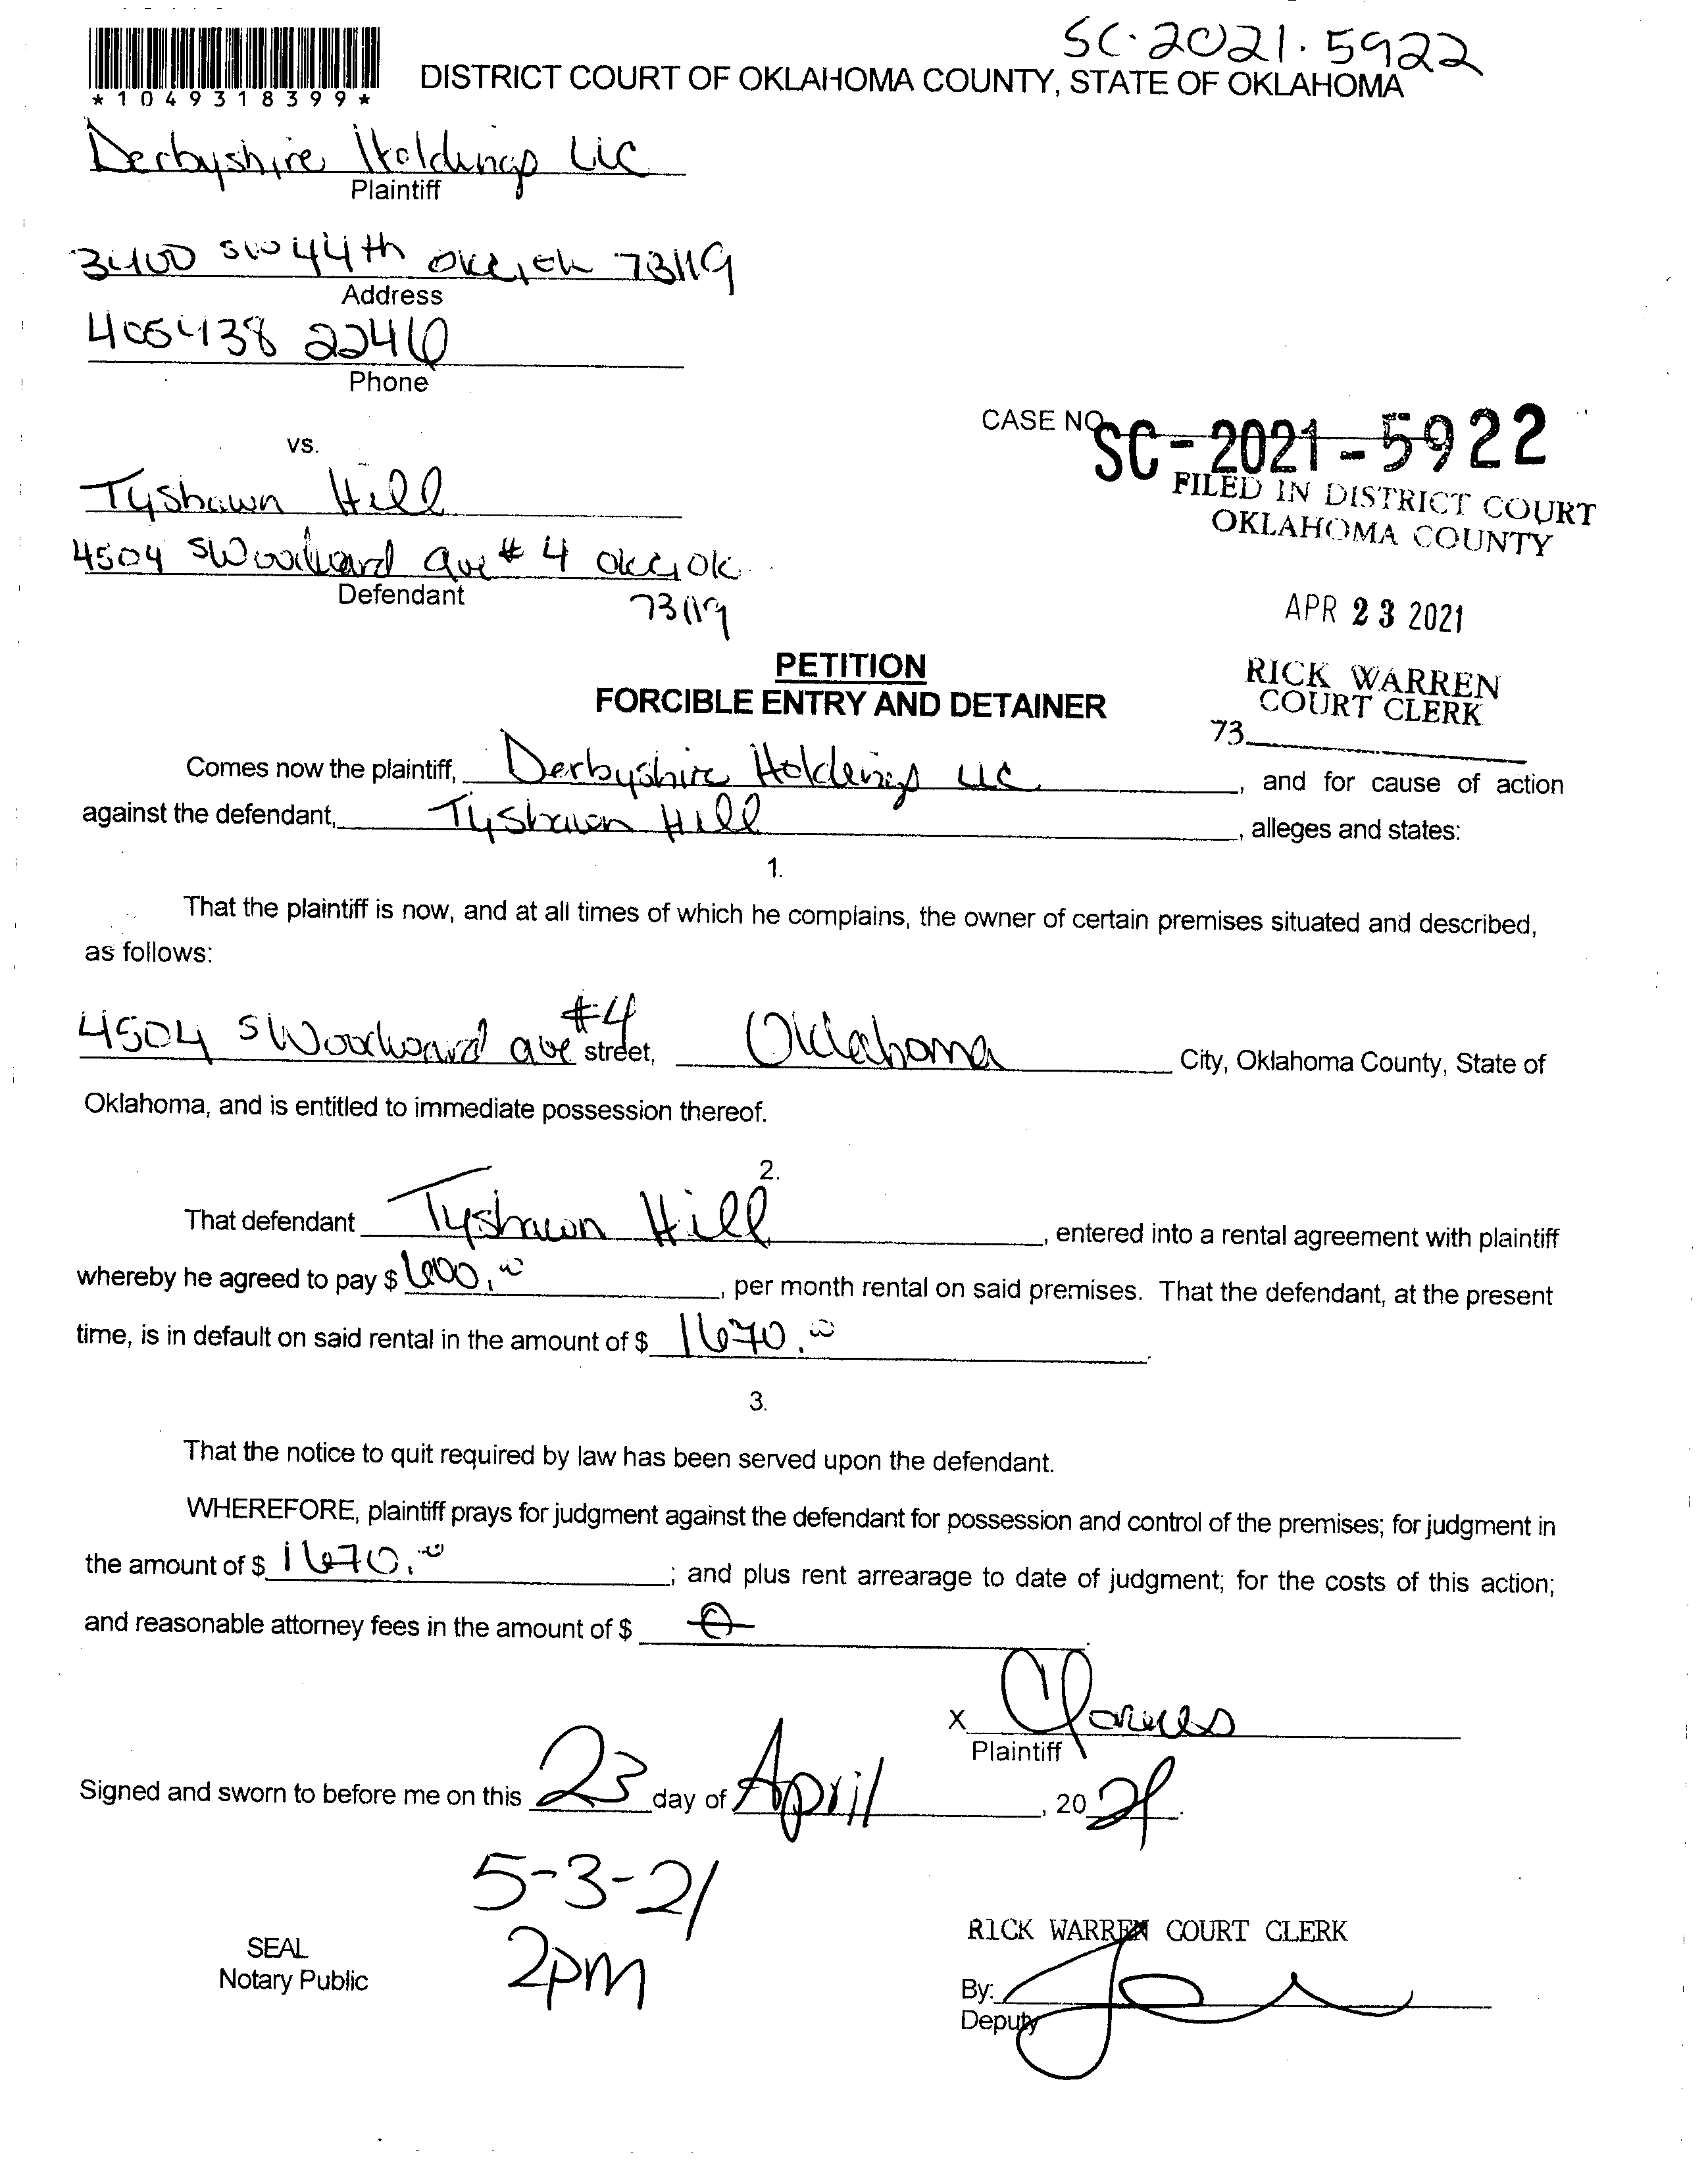 SC-2021-5922
*1049318399*
DISTRICT COURT OF OKLAHOMA COUNTY, STATE OF OKLAHOMA
Derbyshire Holdings LLC
Plaintiff
3400 SW 44th OKC, OK 73119
Address
405 438 2246
Phone
CASE NO. SC-2021-5922
vs.
FILED IN DISTRICT COURT
OKLAHOMA COUNTY
Tyshawn Hill
4504 S Woodward ave # 4 OKC, OK
Defendant
73119
APR 23 2021
PETITION
FORCIBLE ENTRY AND DETAINER
RICK WARREN
COURT CLERK
73
Comes now the plaintiff, Derbyshire Holdings LLC, and for cause of action
against the defendant, Tyshawn Hill, alleges and states:
1.
That the plaintiff is now, and at all times of which he complains, the owner of certain premises situated and described,
as follows:
4504 S Woodward ave #4 street, Oklahoma City, Oklahoma County, State of
Oklahoma, and is entitled to immediate possession thereof.
2.
That defendant Tyshawn Hill, entered into a rental agreement with plaintiff
whereby he agreed to pay $ 600.00, per month rental on said premises. That the defendant, at the present
time, is in default on said rental in the amount of $ 1670.00.
3.
That the notice to quit required by law has been served upon the defendant.
WHEREFORE, plaintiff prays for judgment against the defendant for possession and control of the premises; for judgment in
the amount of $ 1670.00; and plus rent arrearage to date of judgment; for the costs of this action;
and reasonable attorney fees in the amount of $ 0.
X
Plaintiff
Signed and sworn to before me on this 23 day of April, 2021.
5-3-21
2pm
SEAL
Notary Public
RICK WARREN COURT CLERK
By:
Deputy